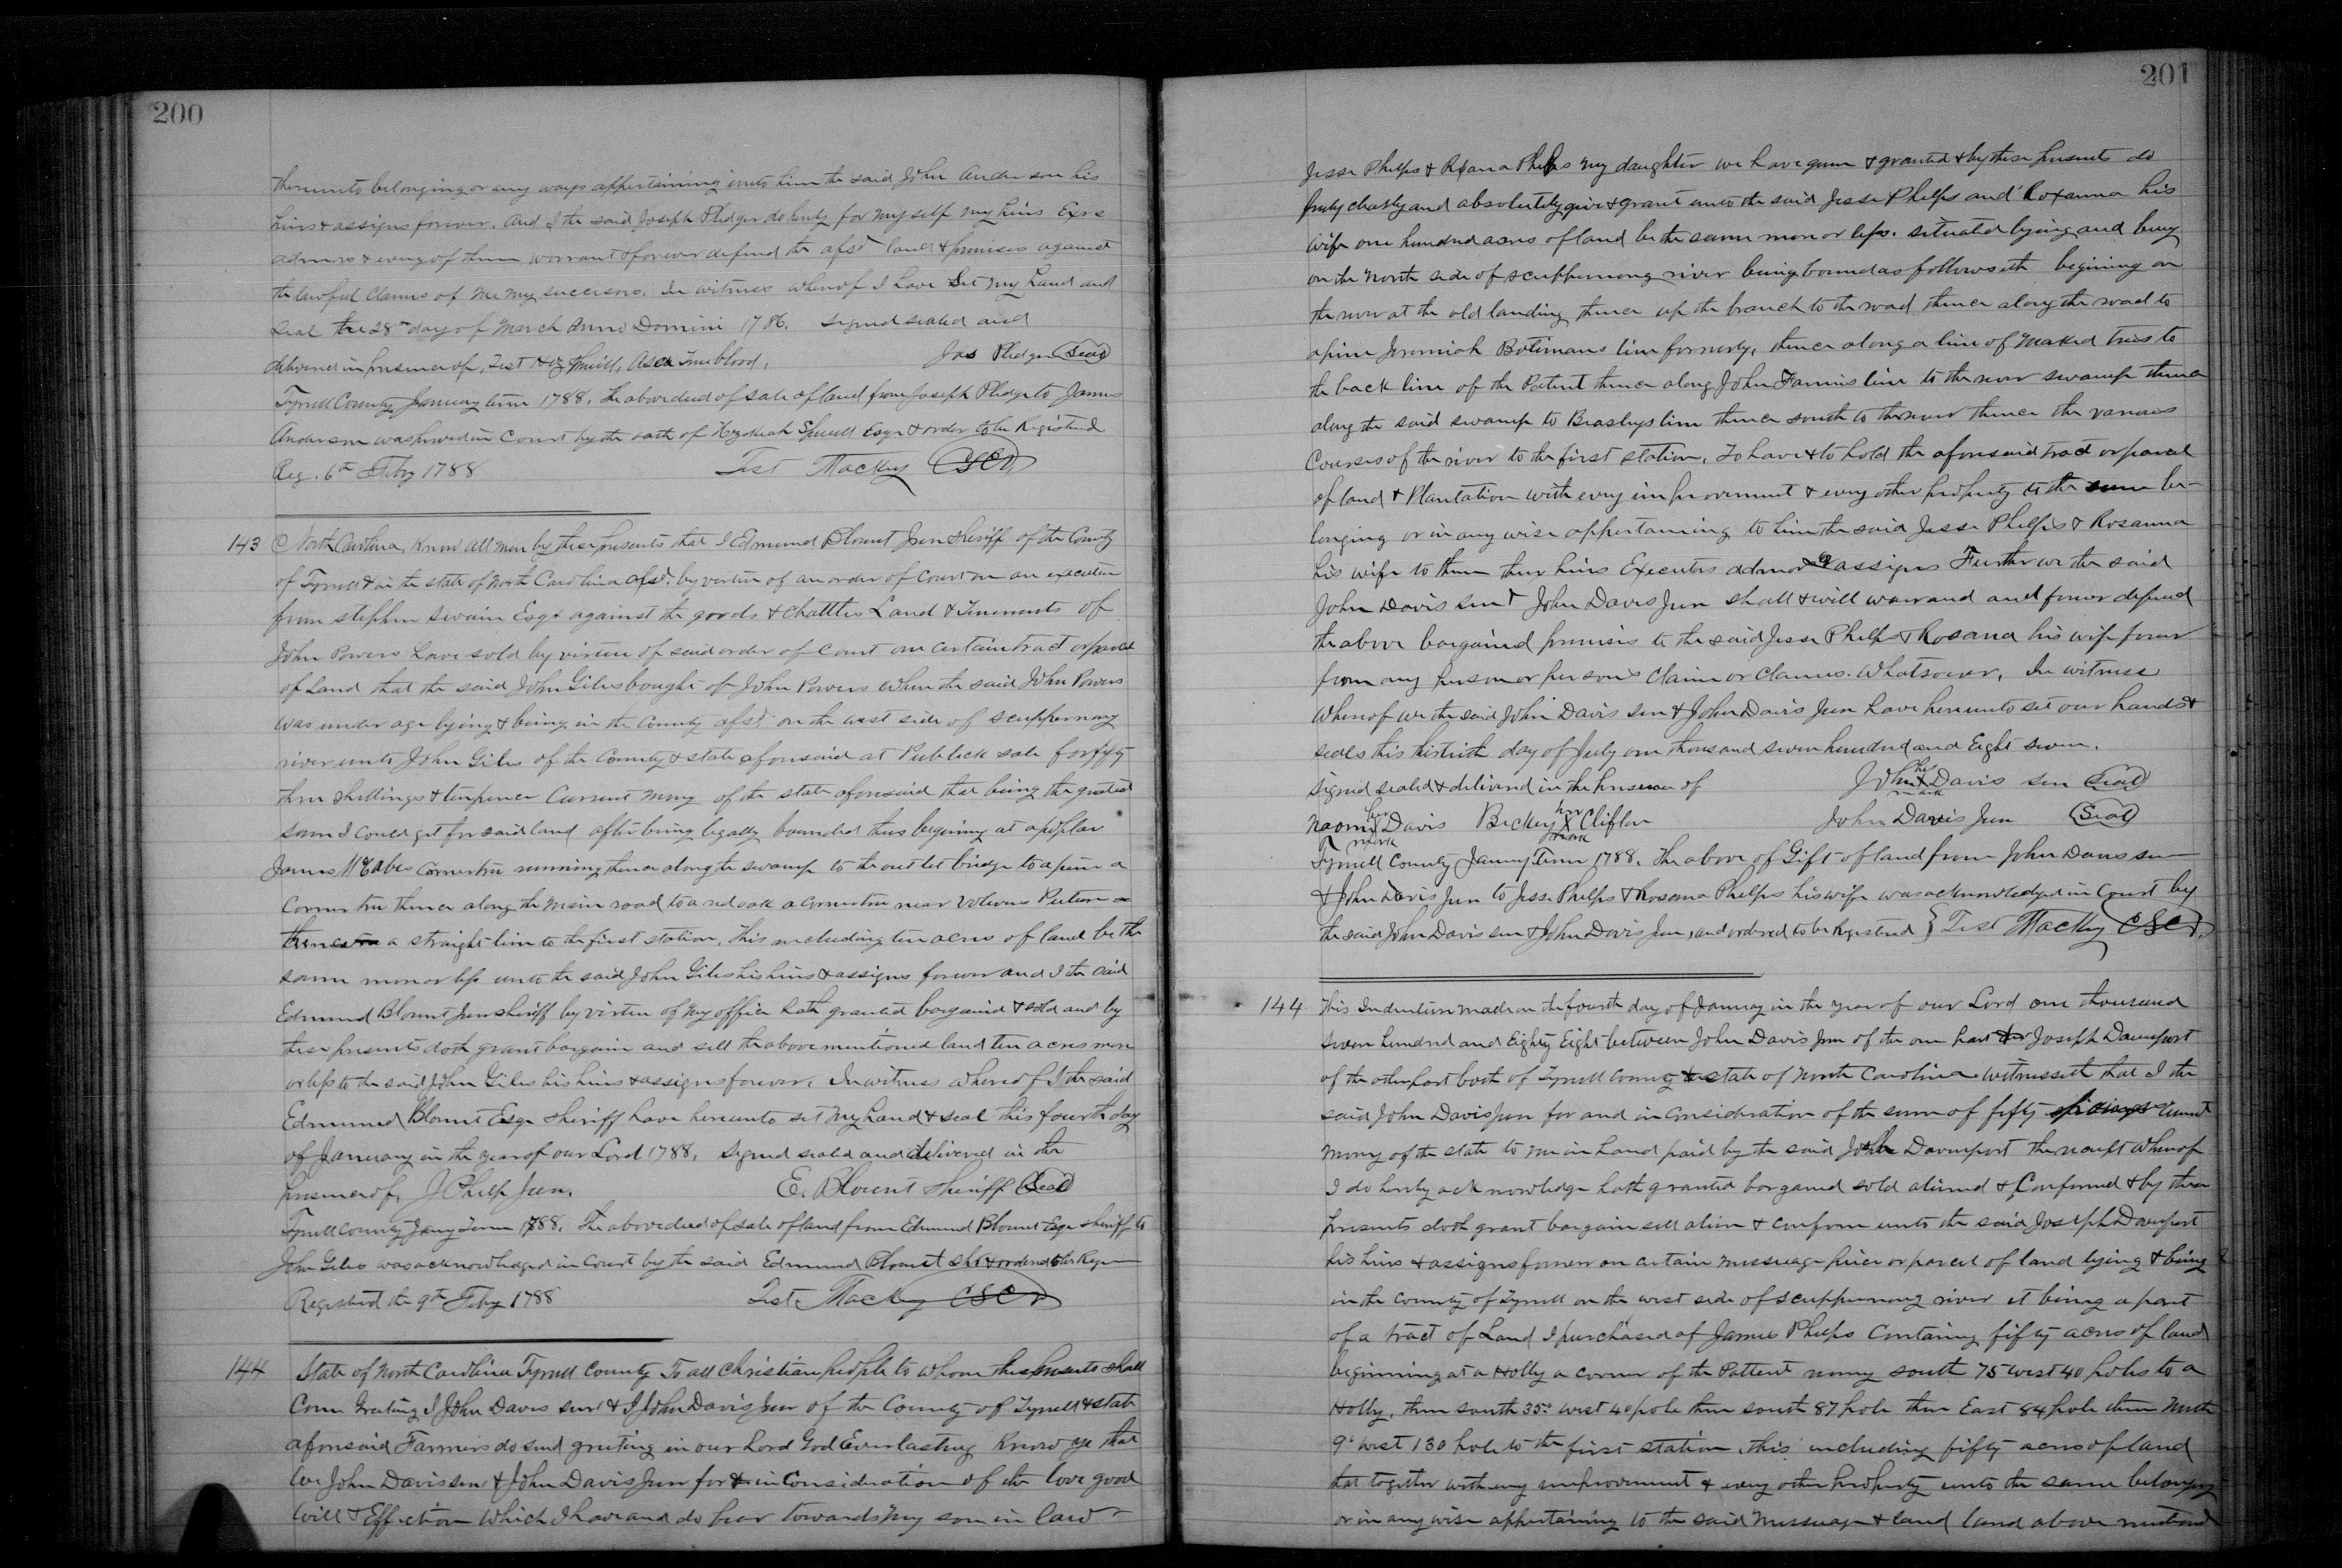 200
thereunto belonging or any ways appertaining unto him the said John Anderson his
heirs & assigns forever. And I the said Joseph Pledger do hereby for myself my heirs Exrs
admrs & every of them warrant & forever defend the afsd land & premises against
the lawful Claims of me my successors. In witness whereof I have Set my hand and
seal the 28th day of March Anno Domini 1786. signed sealed and
delivered in presence of, Test Hez Spruill, Asa Trueblood. Jos Pledger Seal
Tyrrell County January term 1788. The above deed of sale of land from Joseph Pledger to James
Anderson was proved in Court by the oath of Hezekiah Spruill Esqr & order to be Registered
Reg. 6th Feby 1788 Test Mackey CSC
143 North Carolina, Know all men by these presents that I Edmund Blount Jun Sheriff of the County
of Tyrrell & in the state of North Carolina afsd. by vertue of an order of Court on an execution
from stephen Swain Esqr against the goods & chattles Land & Tenements of
John Powers have sold by virtue of said order of Court one certain tract or parcel
of Land that the said John Giles bought of John Powers when the said John Powers
was under age lying & being in the County afsd. on the west side of scuppernong
river unto John Giles of the County & state aforesaid at Publick sale for fifty
three shillings & tenpence Current mony of the state aforesaid that being the greatest
sum I could get for said land after being legally bounded thus begining at a poplar
James McCabes Corner tree running thence along the swamp to the outlet bridge to a pine a
Corner tree thence along the main road to a red oak a Corner tree near
thence a straight line to the first station, this including ten acres of land be the
same more or less unto the said John Giles his heirs & assigns forever and I the said
Edmund Blount Jun sheriff by virtue of my office hath granted bargained & sold and by
these presents doth grant bargain and sell the above mentioned land ten acres more
or less to the said John Giles his heirs & assigns forever. In witness whereof I the said
Edmund Blount Esqr Sheriff have hereunto set my hand & seal this fourth day
of January in the year of our Lord 1788. signed sealed and delivered in the
presence of, J Phelps Jun. E. Blount Sheriff Seal
Tyrrell County Jany Term 1788. The above deed of sale of land from Edmund Blount Esqr sheriff to
John Giles was acknowledged in Court by the said Edmund Blount Shff & ordered to be Regr
Registered the 9th Feby 1788 Test Mackey CSC
144 State of North Carolina Tyrrell County To all Christian people to whom these presents shall
Come Greeting I John Davis senr & I John Davis Jun of the County of Tyrrell & state
aforesaid Farmers do send greeting in our Lord God Everlasting Know ye that
we John Davis sen & John Davis Jun for & in Consideration of the love good
will & Effection which I have and do bear towards my son in law
201
Jesse Phelps & Roxana Phelps my daughter we have given & granted & by these presents do
freely clearly and absolutely give & grant unto the said Jesse Phelps and Roxanna his
wife one hundred acres of land be the same more or less. situated lying and being
on the North side of scuppernong river being bound as followseth begining on
the river at the old landing thence up the branch to the road thence along the road to
a pine Jeremiah Batemans line formerly, thence along a line of marked trees to
the back line of the Patent thence along John Fannis line to the river swamp thence
along the said swamp to Beasleys line thence south to the river thence the various
Courses of the river to the first station. To have & to hold the aforesaid tract or parcel
of land & Plantation with every improvement & every other property to the same be-
longing or in any wise appertaining to him the said Jesse Phelps & Rosanna
his wife to them their heirs Executors admrs & assigns Further we the said
John Davis sen & John Davis Jun shall & will warrand and forever defend
the above bargained premises to the said Jesse Phelps & Rosana his wife forever
from any person or persons Claim or Claims. whatsoever, In witness
whereof we the said John Davis sen & John Davis Jun have hereunto set our hands &
seals this thirtieth day of July one thousand seven hundred and Eight seven.
Signed sealed & delivered in the presence of John his X mark Davis sen Seal
Naomi her X mark Davis Beckey her X mark Clifton John Davis Jun Seal
Tyrrell County January Term 1788. The above of Gift of land from John Davis sen
& John Davis Jun to Jesse Phelps & Rosana Phelps his wife was acknowledged in Court by
the said John Davis sen & John Davis Jun, and ordered to be Registered } Test Mackey CSC
144 This Indenture made on the fourth day of January in the year of our Lord one thousand
seven hundred and Eighty Eight between John Davis Jun of the one part & Joseph Davenport
of the other part both of Tyrrell County & state of North Carolina witnesseth that I the
said John Davis Jun for and in consideration of the sum of fifty Current
mony of the state to me in hand paid by the said Davenport the receipt whereof
I do hereby acknowledge hath granted bargained sold aliened & Confirmed & by these
presents doth grant bargain sell alien & confirm unto the said Joseph Davenport
his heirs & assigns forever on certain messuage piece or parcel of land lying & being
in the County of Tyrrell on the west side of scuppernong river it being a part
of a tract of Land I purchased of James Phelps Containg fifty acres of land
beginning at a Holly a corner of the Pattent runing south 75 west 40 poles to a
Holly, then south 35° west 40 pole then south 87 pole then East 84 pole then North
9° west 130 pole to the first station, this including fifty acres of land
that together with every improvement & every other property unto the same belonging
or in any wise appertaining to the said messuage & land land above mentioned